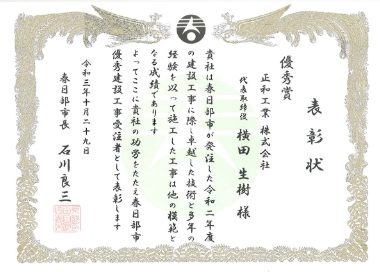 表彰状
優秀賞
正和工業 株式会社
代表取締役 横田 生樹 様
貴社は春日部市が発注した令和二年度
の建設工事に際し卓越した技術と多年の
経験を以って施工した工事は他の模範と
なる成績であります
よってここに貴社の功労をたたえ春日部市
優秀建設工事受注者として表彰します
令和三年十月二十九日
春日部市長 石川良三